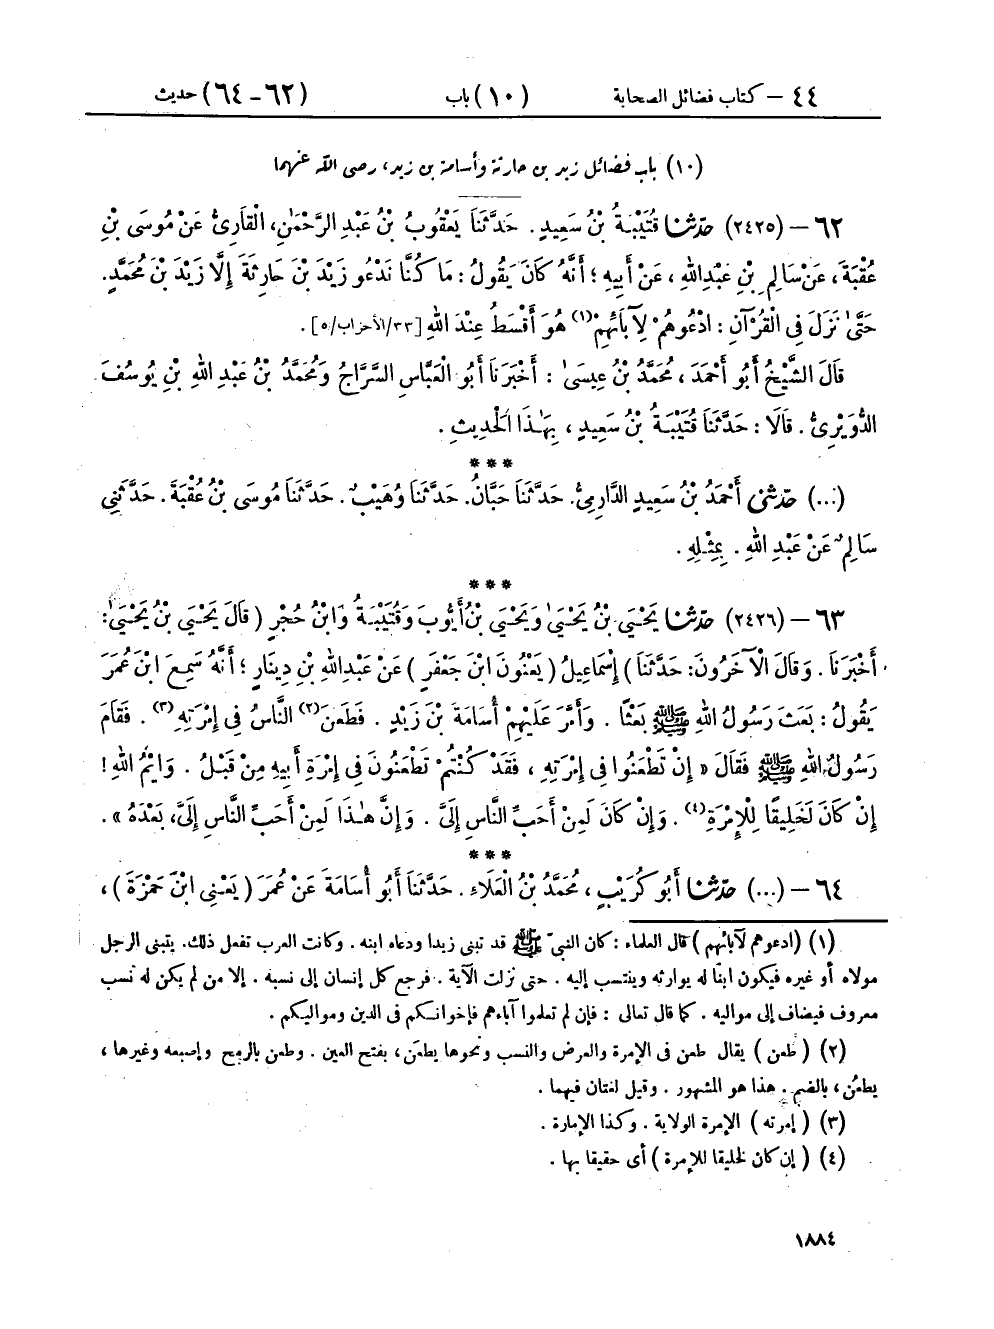 ٤٤ – كتاب فضائل الصحابة (١٠) باب (٦٢-٦٤) حديث
(١٠) باب فضائل زيد بن حارثة وأسامة بن زيد، رضى الله عنهما
٦٢ – (٢٤٢٥) حدّثنا قُتَيْبَةُ بْنُ سَعِيدٍ. حَدَّثَنَا يَعْقُوبُ بْنُ عَبْدِ الرَّحْمَٰنِ، الْقَارِئُ عَنْ مُوسَى بْنِ
عُقْبَةَ، عَنْ سَالِمِ بْنِ عَبْدِاللهِ، عَنْ أَبِيهِ؛ أَنَّهُ كَانَ يَقُولُ: مَا كُنَّا نَدْعُو زَيْدَ بْنَ حَارِثَةَ إِلَّا زَيْدَ بْنَ مُحَمَّدٍ.
حَتَّىٰ نَزَلَ فِى الْقُرْآنِ: ادْعُوهُمْ لِآبَائِهِمْ(١) هُوَ أَقْسَطُ عِنْدَ اللهِ [٣٣/الأحزاب/٥].
قَالَ الشَّيْخُ أَبُو أَحْمَدَ، مُحَمَّدُ بْنُ عِيسَىٰ: أَخْبَرَنَا أَبُو الْعَبَّاسِ السَّرَّاجُ وَمُحَمَّدُ بْنُ عَبْدِ اللهِ بْنِ يُوسُفَ
الدُّوَيْرِىُّ. قَالَا: حَدَّثَنَا قُتَيْبَةُ بْنُ سَعِيدٍ، بِهَٰذَا الْحَدِيثِ.
***
(...) حدّثنى أَحْمَدُ بْنُ سَعِيدٍ الدَّارِمِىُّ. حَدَّثَنَا حَبَّانُ. حَدَّثَنَا وُهَيْبٌ. حَدَّثَنَا مُوسَى بْنُ عُقْبَةَ. حَدَّثَنِي
سَالِمٌ عَنْ عَبْدِ اللهِ. بِمِثْلِهِ.
***
٦٣ – (٢٤٢٦) حدّثنا يَحْيَى بْنُ يَحْيَىٰ وَيَحْيَى بْنُ أَيُّوبَ وَقُتَيْبَةُ وَابْنُ حُجْرٍ (قَالَ يَحْيَى بْنُ يَحْيَىٰ:
أَخْبَرَنَا. وَقَالَ الْآخَرُونَ: حَدَّثَنَا) إِسْمَاعِيلُ (يَعْنُونَ ابْنَ جَعْفَرٍ) عَنْ عَبْدِاللهِ بْنِ دِينَارٍ؛ أَنَّهُ سَمِعَ ابْنَ عُمَرَ
يَقُولُ: بَعَثَ رَسُولُ اللهِ ﷺ بَعْثًا. وَأَمَّرَ عَلَيْهِمْ أُسَامَةَ بْنَ زَيْدٍ. فَطَعَنَ(٢) النَّاسُ فِى إِمْرَتِهِ(٣). فَقَامَ
رَسُولُ اللهِ ﷺ فَقَالَ «إِنْ تَطْعَنُوا فِى إِمْرَتِهِ، فَقَدْ كُنْتُمْ تَطْعَنُونَ فِى إِمْرَةِ أَبِيهِ مِنْ قَبْلُ. وَايْمُ اللهِ!
إِنْ كَانَ لَخَلِيقًا لِلْإِمْرَةِ(٤). وَإِنْ كَانَ لَمِنْ أَحَبِّ النَّاسِ إِلَىَّ. وَإِنَّ هَٰذَا لَمِنْ أَحَبِّ النَّاسِ إِلَىَّ، بَعْدَهُ».
***
٦٤ – (...) حدّثنا أَبُو كُرَيْبٍ، مُحَمَّدُ بْنُ الْعَلَاءِ. حَدَّثَنَا أَبُو أُسَامَةَ عَنْ عُمَرَ (يَعْنِى ابْنَ حَمْزَةَ)،
(١) (ادعوهم لآبائهم) قال العلماء: كان النبىّ ﷺ قد تبنى زيدا ودعاه ابنه. وكانت العرب تفعل ذلك. يتبنى الرجل
مولاه أو غيره فيكون ابنًا له يوارثه وينتسب إليه. حتى نزلت الآية. فرجع كل إنسان إلى نسبه. إلا من لم يكن له نسب
معروف فيضاف إلى مواليه. كما قال تعالى: فإن لم تعلموا آباءهم فإخوانكم فى الدين ومواليكم.
(٢) (طعن) يقال طعن فى الإمرة والعرض والنسب ونحوها يطعَن، بفتح العين. وطعن بالرمح وإصبعه وغيرها،
يطعُن، بالضم. هذا هو المشهور. وقيل لغتان فيهما.
(٣) (إمرته) الإمرة الولاية. وكذا الإمارة.
(٤) (إن كان لخليقا للإمرة) أى حقيقا بها.
١٨٨٤